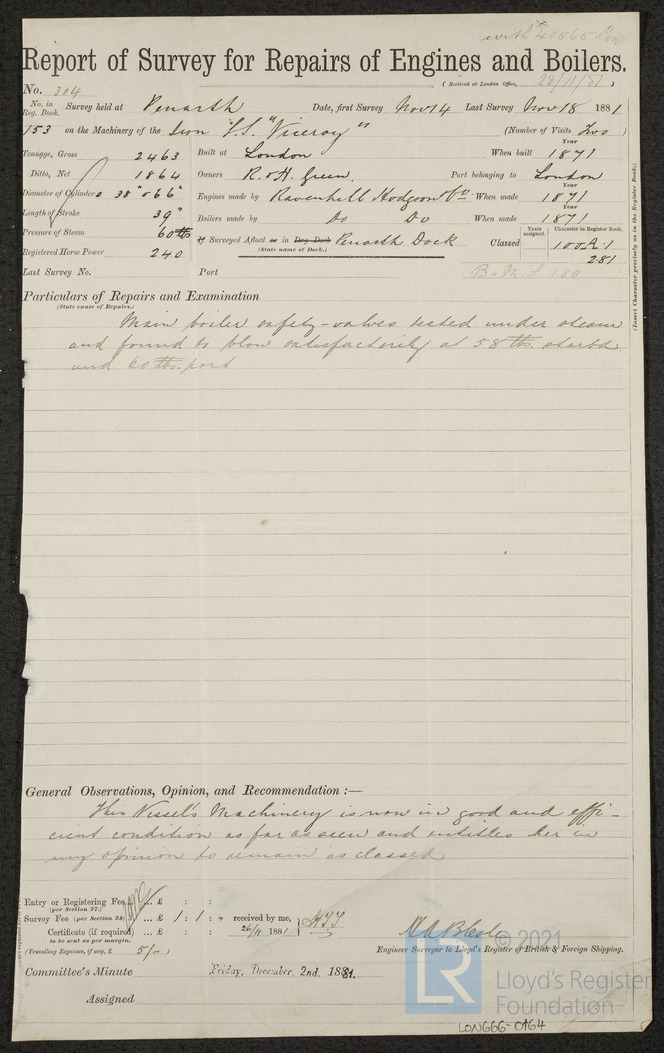 with 40865 Lon
Report of Survey for Repairs of Engines and Boilers.
(Received at London Office, 28/11/81)
No. 304
No. in Reg. Book. Survey held at Penarth Date, first Survey Nov 14 Last Survey Nov 18 1881
153 on the Machinery of the Iron S.S. "Viceroy" (Number of Visits Two)
Tonnage, Gross 2463 Built at London When built Year 1871
Ditto, Net 1864 Owners R. & H. Green. Port belonging to London
Diameter of Cylinders 38" & 66" Engines made by Ravenhill Hodgson & Co. When made Year 1871
Length of Stroke 39" Boilers made by Do Do When made Year 1871
Pressure of Steam 60 lbs If Surveyed Afloat or in Dry Dock Penarth Dock Classed Years assigned. Character in Register Book. 100A1
(State name of Dock.)
Registered Horse Power 240 2 81
Last Survey No. Port B&M.S. 1 80
Particulars of Repairs and Examination
(State cause of Repairs.)
(Insert Character precisely as in the Register Book.)
Main boiler safety-valves tested under steam
and found to blow satisfactorily at 58 lbs. starbd
and 60 lbs. port
General Observations, Opinion, and Recommendation :—
This Vessel's Machinery is now in good and effi-
cient condition as far as seen and entitles her in
my opinion to remain as classed
Entry or Registering Fee... £ : :
(per Section 27.)
Survey Fee (per Section 28) ... £ 1 : 1 : " received by me,
Certificate (if required) ... £ : : 26/11 1881
to be sent as per margin.
(Travelling Expenses, if any, £ 5/-)
Engineer Surveyor to Lloyd's Register of British & Foreign Shipping.
Committee's Minute Friday, December, 2nd. 1881.
Assigned
© 2021
LR
Lloyd's Register
Foundation
LON666-0164